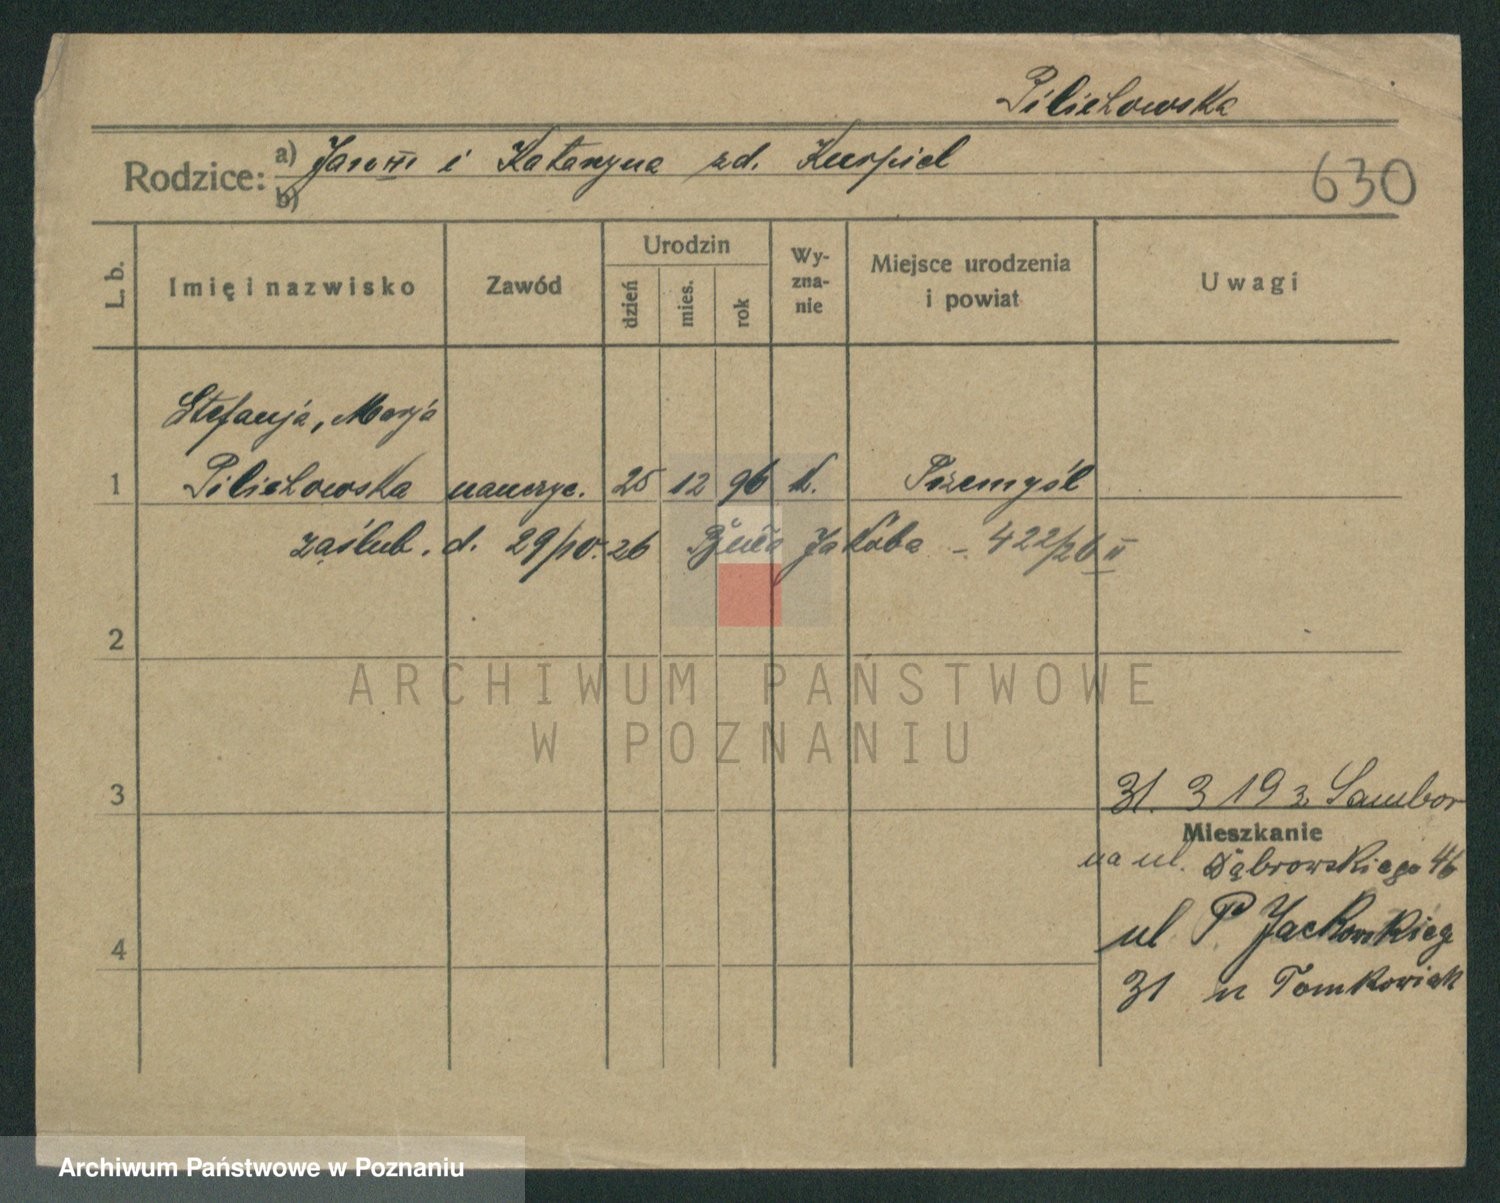 Pilichowska
Rodzice: a) i Katarzyna zd. Kurpiel
b)
630
L. b. Imię i nazwisko Zawód Urodzin dzień mies. rok Wyznanie Miejsce urodzenia i powiat Uwagi
Stefanja, Marja
1 Pilichowska nauczyc. 25 12 96 k. Przemyśl
zaślub. d. 29/10.26 Jakóba – 422/26 II
2
ARCHIWUM PAŃSTWOWE
W POZNANIU
3 31. 3 19 z Sambor
Mieszkanie
na ul. Dąbrowskiego 46
ul P. Jackowskieg
4
31 u Tomkowiak
Archiwum Państwowe w Poznaniu